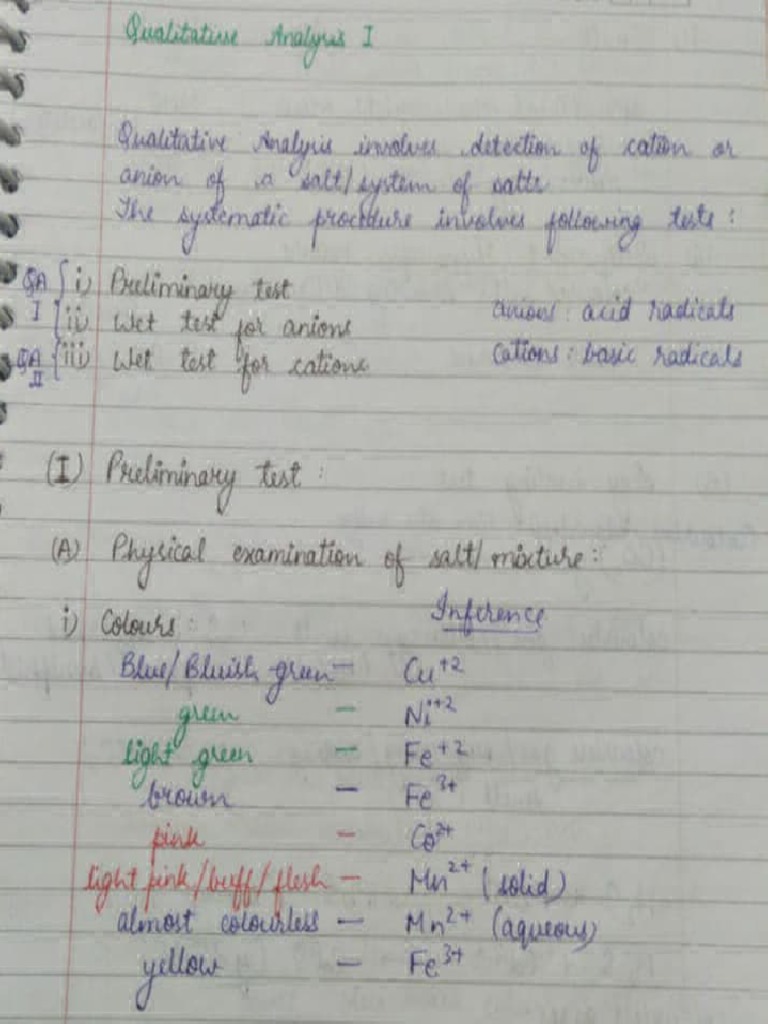 Qualitative Analysis I
Qualitative Analysis involves detection of cation or
anion of a salt/system of salts
The systematic procedure involves following tests :
QA I { i) Preliminary test
ii) Wet test for anions anions : acid radicals
QA II { iii) Wet test for cations Cations : basic radicals
(I) Preliminary test :
(A) Physical examination of salt/mixture :
i) Colours : Inference
Blue/Bluish green – Cu+2
green – Ni+2
light green – Fe+2
brown – Fe3+
pink – Co2+
light pink/buff/flesh – Mn2+ (solid)
almost colourless – Mn2+ (aqueous)
yellow – Fe3+